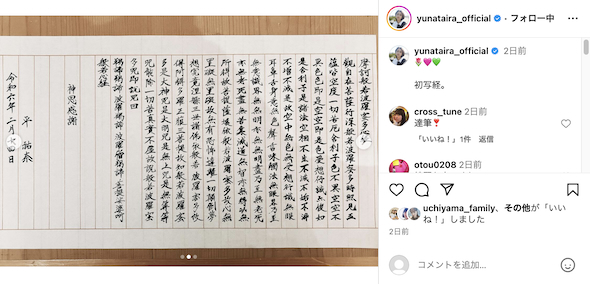 摩訶般若波羅蜜多心経
觀自在菩薩行深般若波羅蜜多時照見五
蘊皆空度一切苦厄舎利子色不異空空不
異色色即是空空即是色受想行識亦復如
是舎利子是諸法空相不生不滅不垢不浄
不増不減是故空中無色無受想行識無眼
耳鼻舌身意無色聲香味觸法無眼界乃至
無意識界無無明亦無無明盡乃至無老死
亦無老死盡無苦集滅道無智亦無得以無
所得故菩提薩埵依般若波羅蜜多故心無
罣礙無罣礙故無有恐怖遠離一切顛倒夢
想究竟涅槃三世諸佛依般若波羅蜜多故
得阿耨多羅三藐三菩提故知般若波羅蜜
多是大神呪是大明呪是無上呪是無等等
呪能除一切苦真實不虚故説般若波羅蜜
多呪即説呪曰
羯諦羯諦波羅羯諦波羅僧羯諦菩提薩婆訶
般若心経
神恩感謝
平 祐奈
令和六年二月 日
yunataira_official • フォロー中
yunataira_official 2日前
🌷💗💚
初写経。
cross_tune 2日前
達筆❣️
「いいね！」1件 返信
otou0208 2日前
uchiyama_family、その他が「いいね！」しました
2日前
コメントを追加...